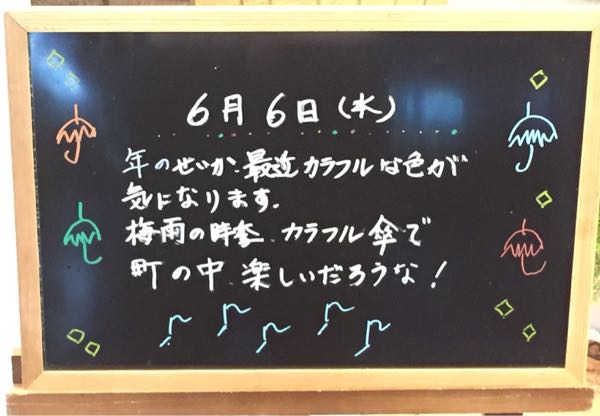 6月6日(水)
年のせいか、最近カラフルな色が
気になります。
梅雨の時季 カラフル傘で
町の中 楽しいだろうな!